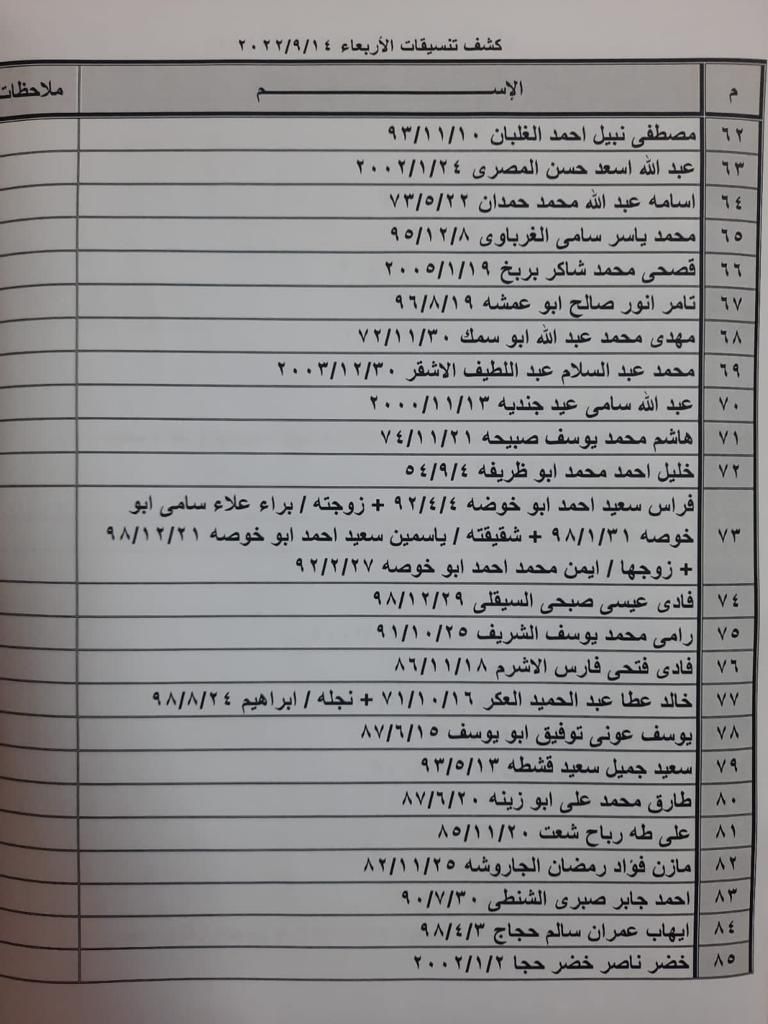 كشف تنسيقات الأربعاء ٢٠٢٢/٩/١٤
م الإســـــــــــــم ملاحظات
٦٢ مصطفى نبيل احمد الغلبان ٩٣/١١/١٠
٦٣ عبد الله اسعد حسن المصرى ٢٠٠٢/١/٢٤
٦٤ اسامه عبد الله محمد حمدان ٧٣/٥/٢٢
٦٥ محمد ياسر سامى الغرباوى ٩٥/١٢/٨
٦٦ قصحى محمد شاكر بربخ ٢٠٠٥/١/١٩
٦٧ تامر انور صالح ابو عمشه ٩٦/٨/١٩
٦٨ مهدى محمد عبد الله ابو سمك ٧٢/١١/٣٠
٦٩ محمد عبد السلام عبد اللطيف الاشقر ٢٠٠٣/١٢/٣٠
٧٠ عبد الله سامى عيد جنديه ٢٠٠٠/١١/١٣
٧١ هاشم محمد يوسف صبيحه ٧٤/١١/٢١
٧٢ خليل احمد محمد ابو ظريفه ٥٤/٩/٤
٧٣ فراس سعيد احمد ابو خوضه ٩٢/٤/٤ + زوجته / براء علاء سامى ابو
خوصه ٩٨/١/٣١ + شقيقته / ياسمين سعيد احمد ابو خوصه ٩٨/١٢/٢١
+ زوجها / ايمن محمد احمد ابو خوصه ٩٢/٢/٢٧
٧٤ فادى عيسى صبحى السيقلى ٩٨/١٢/٢٩
٧٥ رامى محمد يوسف الشريف ٩١/١٠/٢٥
٧٦ فادى فتحى فارس الاشرم ٨٦/١١/١٨
٧٧ خالد عطا عبد الحميد العكر ٧١/١٠/١٦ + نجله / ابراهيم ٩٨/٨/٢٤
٧٨ يوسف عونى توفيق ابو يوسف ٨٧/٦/١٥
٧٩ سعيد جميل سعيد قشطه ٩٣/٥/١٣
٨٠ طارق محمد على ابو زينه ٨٧/٦/٢٠
٨١ على طه رباح شعت ٨٥/١١/٢٠
٨٢ مازن فؤاد رمضان الجاروشه ٨٢/١١/٢٥
٨٣ احمد جابر صبرى الشنطى ٩٠/٧/٣٠
٨٤ ايهاب عمران سالم حجاج ٩٨/٤/٣
٨٥ خضر ناصر خضر حجا ٢٠٠٢/١/٢